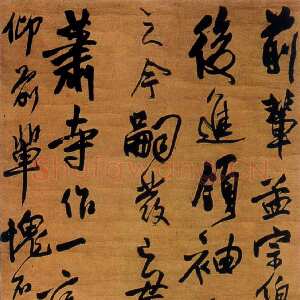 前輩益宗伯
後進領袖
之今嗣發之世
蕭寺作一
仰前輩愧不